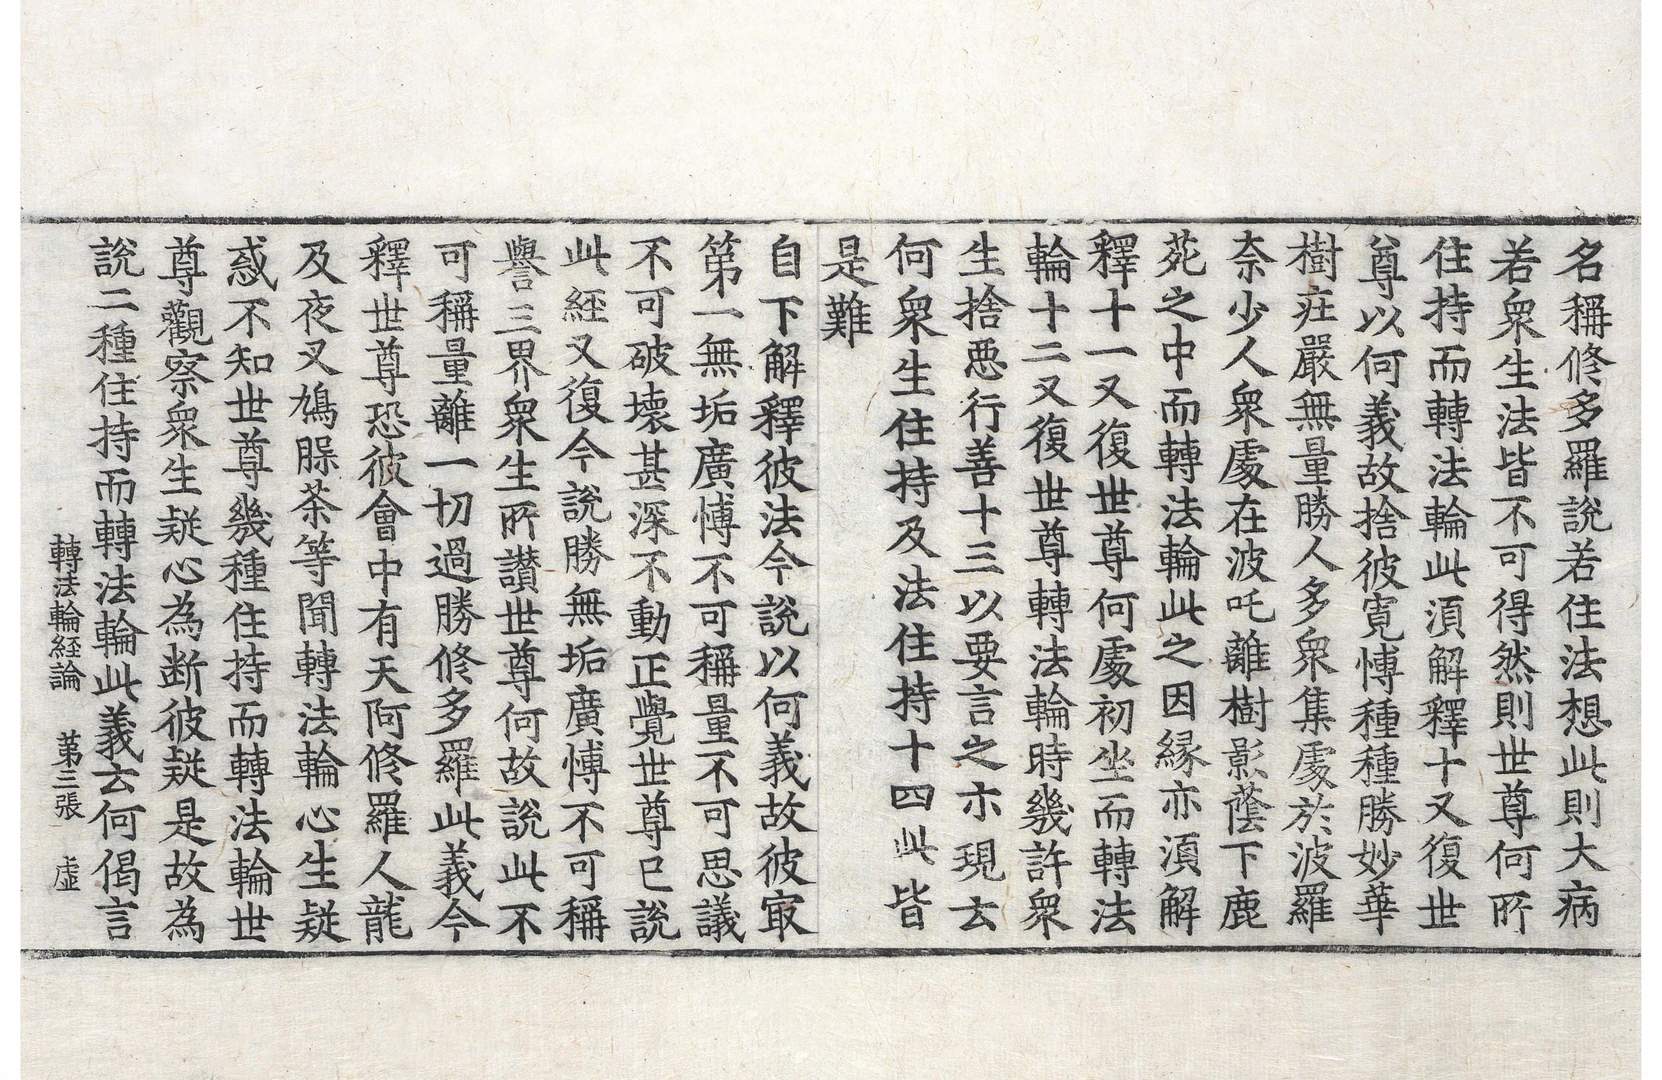 名稱修多羅說若住法想此則大病
若衆生法皆不可得然則世尊何所
住持而轉法輪此須解釋十又復世
尊以何義故捨彼寬愽種種勝妙華
樹㽵嚴無量勝人多衆集處於波羅
奈少人衆處在波吒離樹影蔭下鹿
苑之中而轉法輪此之因縁亦須解
釋十一又復世尊何處初坐而轉法
輪十二又復世尊轉法輪時幾許衆
生捨惡行善十三以要言之亦現去
何衆生住持及法住持十四此皆
是難
自下解釋彼法今說以何義故彼㝡
第一無垢廣愽不可稱量不可思議
不可破壞甚深不動正覺世尊已說
此経又復今說勝無垢廣愽不可稱
譽三界衆生所讃世尊何故說此不
可稱量離一切過勝修多羅此義今
釋世尊恐彼會中有天阿修羅人龍
及夜叉鳩腺荼等聞轉法輪心生疑
惑不知世尊幾種住持而轉法輪世
尊觀察衆生疑心為断彼疑是故為
說二種住持而轉法輪此義云何偈言
轉法輪経論 第三張 虛